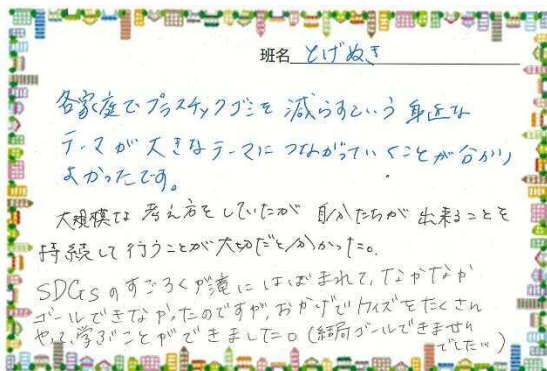 班名 とげぬき
各家庭でプラスチックゴミを減らすという身近な
テーマが大きなテーマにつながっていくことが分かり
よかったです。
大規模な考え方をしていたが自分たちが出来ることを
持続して行うことが大切だと分かった。
SDGsのすごろくが滝にはばまれて、なかなか
ゴールできなかったのですが、おかげでクイズをたくさん
やって、学ぶことができました。(結局ゴールできません
でした…)